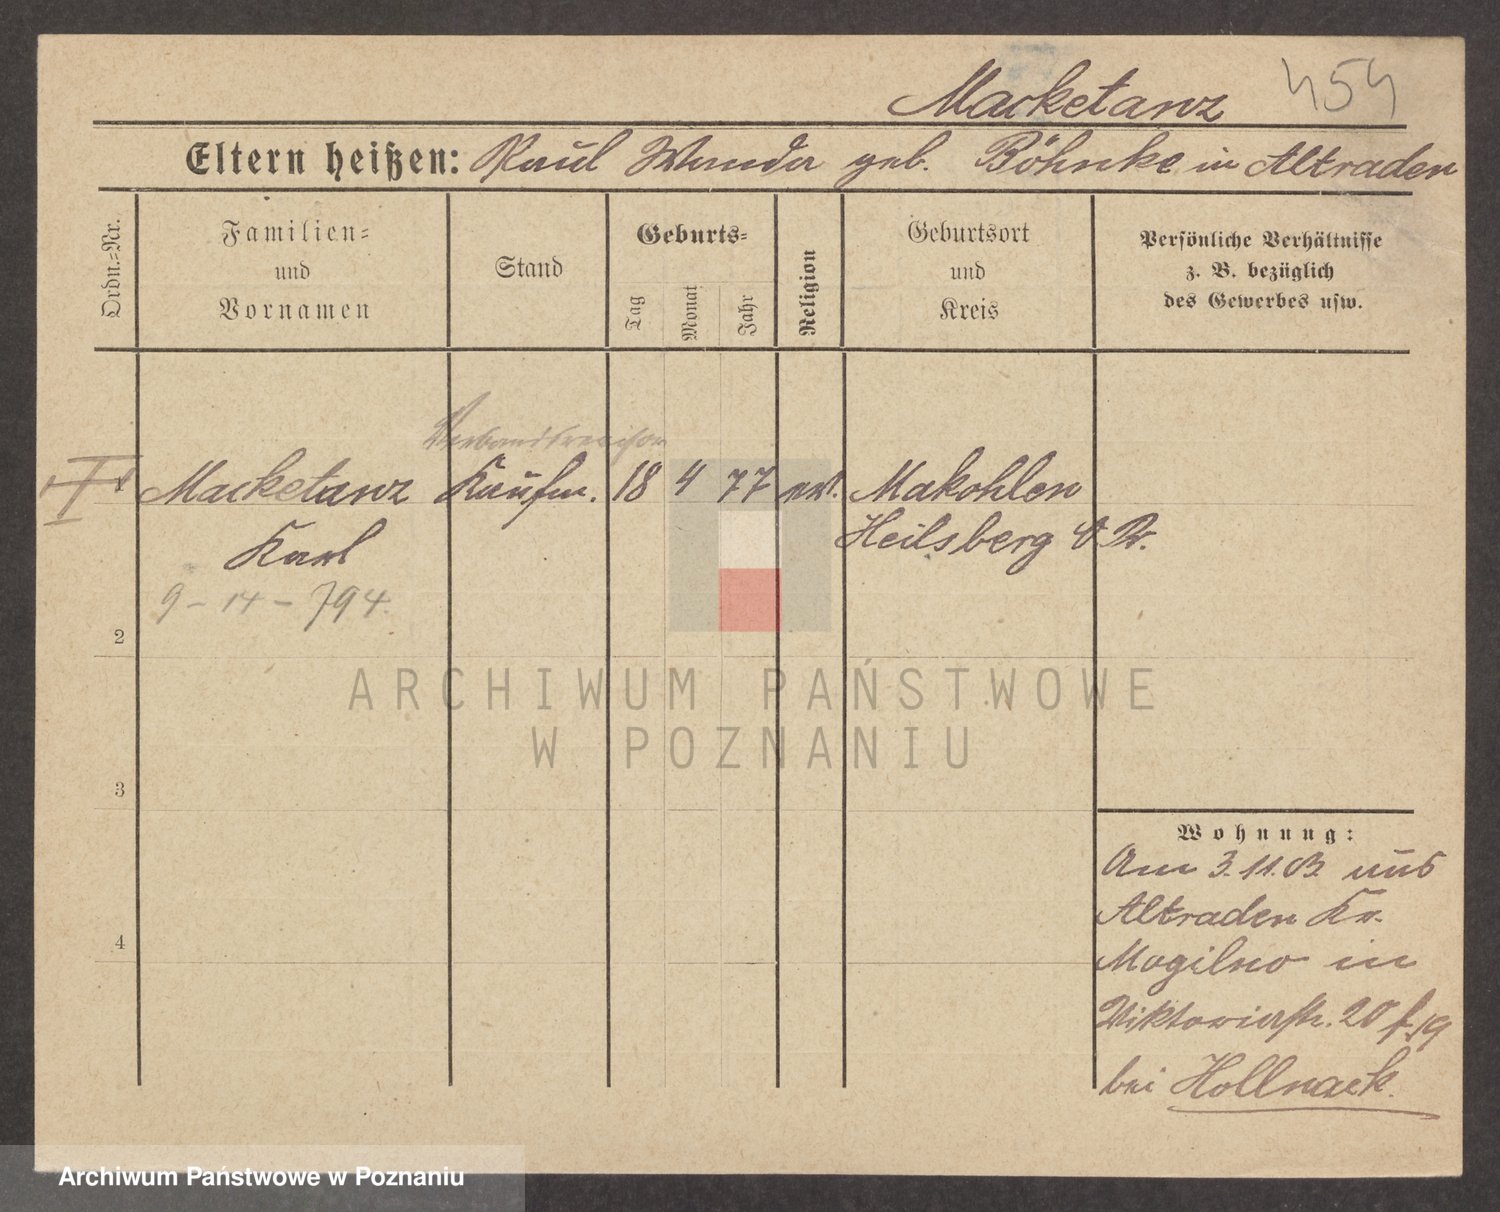 Macketanz 454
Eltern heißen: Paul Wanda geb. Böhnke in Altraden
Ordn.-Nr.
Familien-
und
Vornamen
Stand
Geburts-
Tag
Monat
Jahr
Religion
Geburtsort
und
Kreis
Persönliche Verhältnisse
z. B. bezüglich
des Gewerbes usw.
I 1 Macketanz Kaufm. 18 4 77 Makohlen
Karl Heilsberg O. Pr.
9 - 14 - 794.
2
ARCHIWUM PAŃSTWOWE
W POZNANIU
3
Wohnung:
Am 3.11.03 aus
Altraden Kr.
4
Mogilno in
Viktoriastr. 20
bei Hollnack.
Archiwum Państwowe w Poznaniu